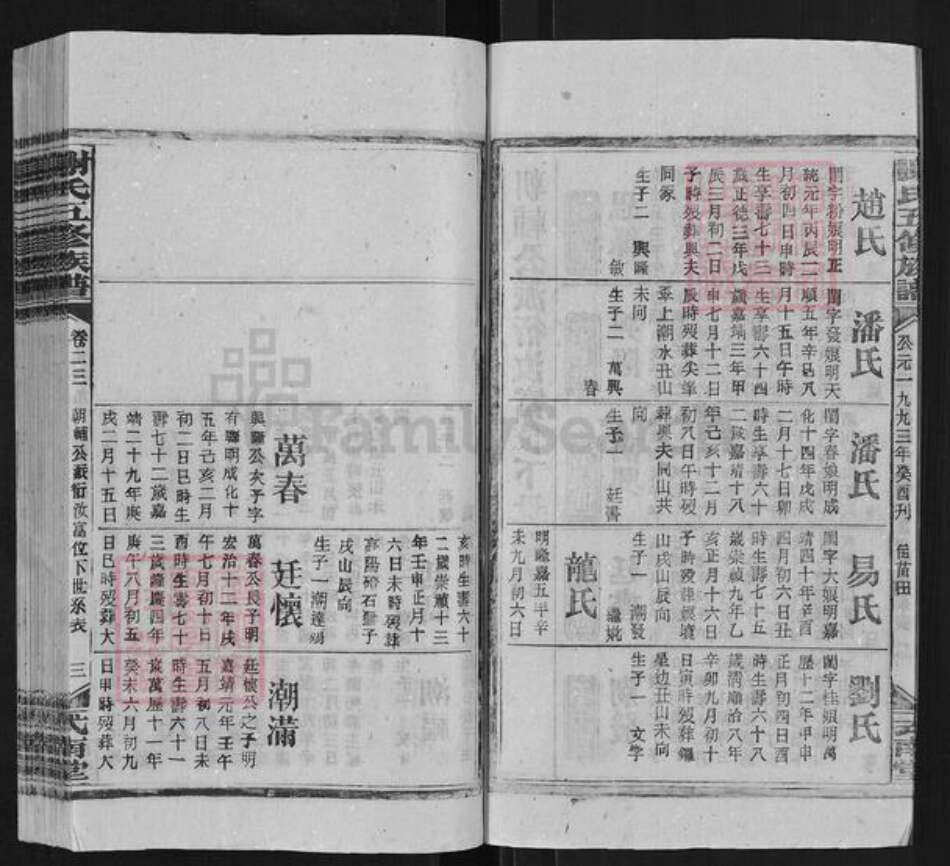 謝氏五修族譜
公元一九九三年癸酉刊
趙氏
閨字粉娘明正
統元年丙辰二
月初四日申時
生享壽七十三
歲正德三年戊
辰三月初二日
子時歿葬與夫
同冢
生子二 興隆
潘氏
閨字發娘明天
順五年辛巳八
月十五日午時
生享壽六十四
歲嘉靖三年甲
申七月十二日
辰時歿葬尖峯
寨上潮水丑山
未向
生子二 萬興
春
潘氏
閨字春娘明成
化十四年戊戌
二月十七日卯
時生享壽六十
二歲嘉靖十八
年己亥十二月
初八日午時歿
葬與夫同山共
向
生子一 廷書
易氏
閨字大娘明嘉
靖四十年辛酉
四月初六日丑
時生壽七十五
歲崇禎九年乙
亥正月十六日
子時歿葬銀墳
山戌山辰向
生子一 潮發
繼妣
龍氏
明隆嘉五年辛
未九月初六日
劉氏
閨字桂娘明萬
曆十二年甲申
正月初四日酉
時生壽六十八
歲清順治八年
辛卯九月初十
日寅時歿葬
星边丑山未向
生子一 文學
萬春
興隆公次子字
有聯明成化十
五年己亥二月
初二日巳時生
壽七十二歲嘉
靖二十九年庚
戌二月十五日
亥時生壽六十
二歲崇禎十三
年壬申正月十
六日未時歿葬
高陽磅石獅子
戌山辰向
生子一 潮達
廷懷
萬春公長子明
宏治十二年戌
午七月初十日
酉時生壽七十
三歲隆慶四年
庚午八月初五
日巳時歿葬大
潮滿
廷懷公之子明
嘉靖元年壬午
五月初八日未
時生壽六十一
歲萬曆十一年
癸未六月初九
日申時歿葬大
謝氏五修族譜
卷二三
朝輔公派衍汝富位下世系表
三
FamilySearch